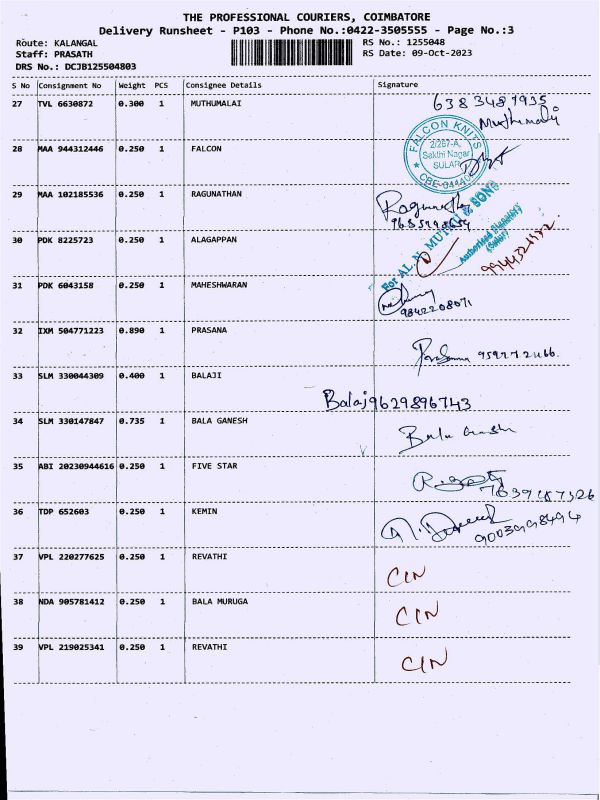 THE PROFESSIONAL COURIERS, COIMBATORE
Delivery Runsheet - P103 - Phone No.:0422-3505555 - Page No.:3
Route: KALANGAL
Staff: PRASATH
DRS No.: DCJB125504803
RS No.: 1255048
RS Date: 09-Oct-2023
S No Consignment No Weight PCS Consignee Details Signature
27 TVL 6630872 0.300 1 MUTHUMALAI 6383487935
28 MAA 944312446 0.250 1 FALCON
FALCON KNITS
2/267-A,
Sakthi Nagar
SULAR
29 MAA 102185536 0.250 1 RAGUNATHAN Ragunathan
For AL. N. MUTHU & SONS
Authorised Signatory
30 PDK 8225723 0.250 1 ALAGAPPAN
31 PDK 6043158 0.250 1 MAHESHWARAN
9842208071
32 IXM 504771223 0.890 1 PRASANA
33 SLM 330044309 0.400 1 BALAJI
Balaj 9629896743
34 SLM 330147847 0.735 1 BALA GANESH
35 ABI 20230944616 0.250 1 FIVE STAR
36 TDP 652603 0.250 1 KEMIN
37 VPL 220277625 0.250 1 REVATHI CIN
38 NDA 905781412 0.250 1 BALA MURUGA CIN
39 VPL 219025341 0.250 1 REVATHI CIN